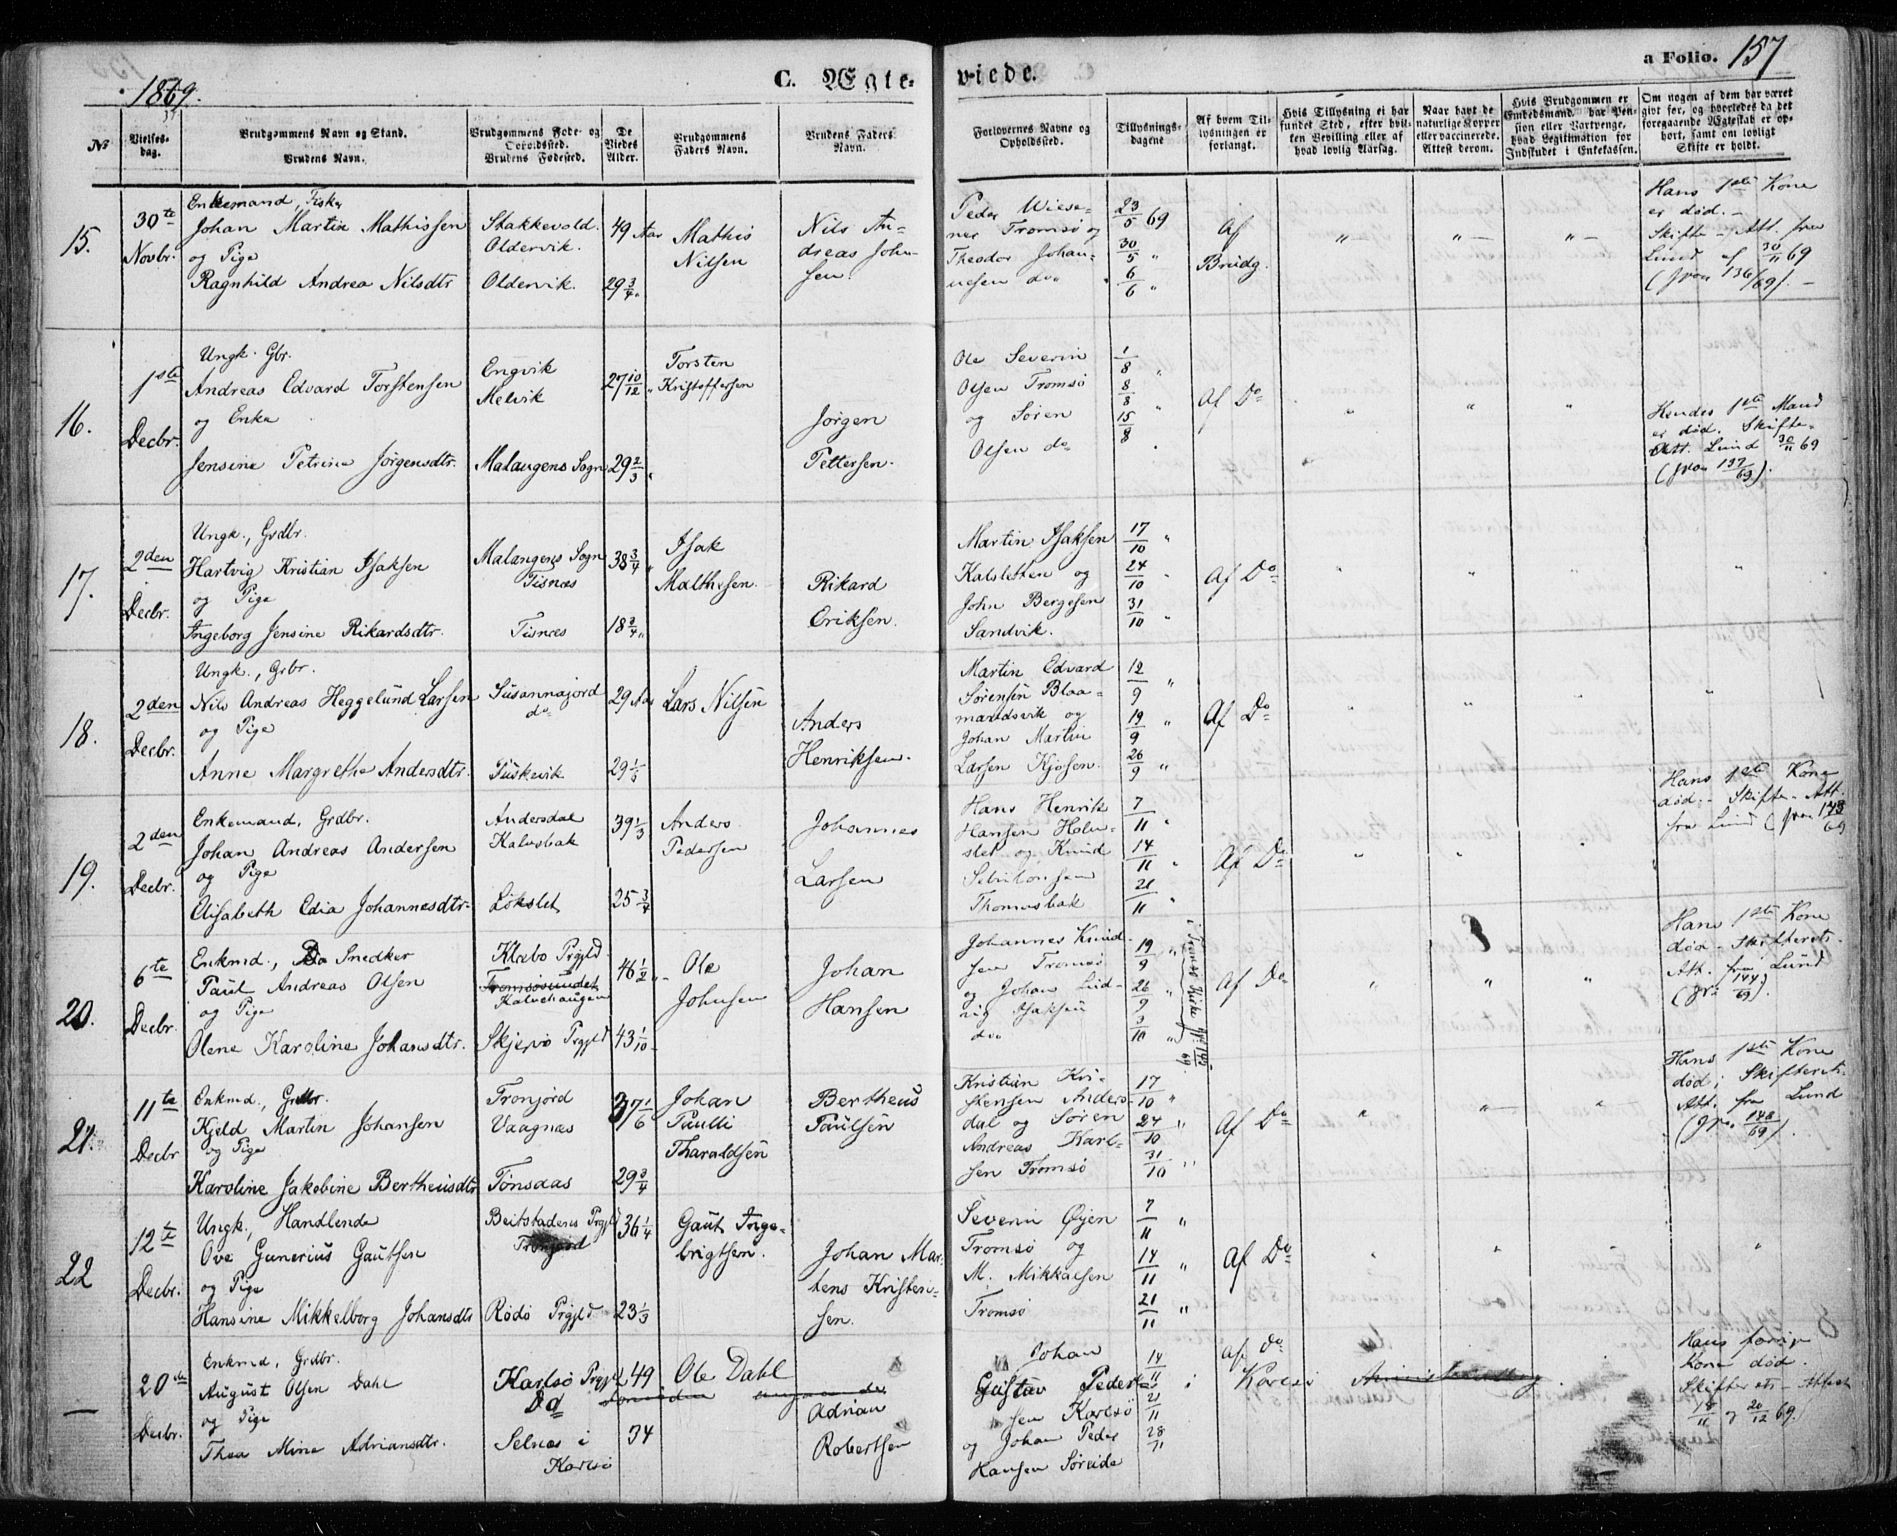 1869.
C. Ægte-
viede.
a Folio. 157
No
Vielses-
dag.
Brudgommens Navn og Stand.
Brudens Navn.
Brudgommens Føde- og
Opholdssted.
Brudens Fødested.
De
Viedes
Alder.
Brudgommens
Faders Navn.
Brudens Faders
Navn.
Forlovernes Navne og
Opholdssted.
Tillysnings-
dagene
Af hvem Til-
lysningen er
forlangt.
Hvis Tillysning ei har
fundet Sted, efter hvil-
ken Bevilling eller af
hvad lovlig Aarsag.
Naar havt de
naturlige Kopper
eller vaccinerede.
Attest derom.
Hvis Brudgommen er
Embedsmand, har Pen-
sion eller Vartpenge,
hvad Legitimation for
Indskudet i Enkekassen.
Om nogen af dem har været
gift før, og hvorledes da det
foregaaende Ægteskab er op-
hørt, samt om lovligt
Skifte er holdt.
15.
30te
Novbr.
Enkemand, Fisker
Johan Martin Mathissen
og Pige
Ragnhild Andrea Nilsdtr
Stakkevold.
Oldervik.
Oldervik.
49 Aar
29 3/4 "
Mathis
Nilsen
Nils An-
dreas John-
sen.
Peder Wiese-
ner Tromsø og
Theodor Johan-
nesen do
23/5 69
30/5 "
6/6 "
Af
Brudg.
" -
" -
" -
Hans 1ste Kone
er død. -
Skifte - Att. fra
Lund af 30/11 69
(Jrn 136/69). -
16.
1ste
Decbr.
Ungk. Gbr.
Andreas Edvard Torstensen
og Enke
Jensine Petrine Jørgensdtr.
Engvik
Melvik
Malangens Sogn
27 10/12 "
29 2/3 "
Torsten
Kristoffersen
Jørgen
Pettersen.
Ole Severin
Olsen Tromsø
og Søren
Olsen do
1/8 "
8/8 "
15/8
Af Do
"
"
"
Hendes 1ste Mand
er død. Skifte-
Att. Lund 30/11 69
(Jrn 137/69).
17.
2den
Decbr.
Ungk., Grdbr.
Hartvig Kristian Isaksen
og Pige
Ingeborg Jensine Rikardsdtr.
Malangens Sogn
Tisnæs
Tisnæs
38 3/4 "
18 3/4 "
Isak
Malthesen.
Rikard
Eriksen.
Martin Isaksen
Kalsletten og
John Bergesen
Sandvik.
17/10 "
24/10 "
31/10 "
Af Do
"
"
"
18.
2den
Decbr.
Ungk., Grbr.
Nils Andreas Heggelund Larsen
og Pige
Anne Margrethe Andersdtr.
Susannajord
do
Tuskevik
29 Aar
29 1/3
Lars Nilsen
Anders
Henriksen.
Martin Edvard
Sørensen Blaa-
mandsvik og
Johan Martin
Larsen Kjosen.
12/9 "
19/9 "
26/9 "
Af Do
"
"
"
19.
2den
Decbr.
Enkemand, Grdbr.
Johan Andreas Andersen
og Pige
Elisabeth Edia Johannesdtr.
Andersdal
Kalvebak
Løkslet
39 1/3
25 3/4
Anders
Pedersen
Johannes
Larsen
Hans Henrik
Hansen Holm-
slet og Knud
Thomasbak
7/11 "
14/11 "
21/11 "
Af Do
"
"
"
Hans 1ste Kone
død. - Skifte - Att.
fra Lund (Jrn 143/69
20.
6te
Decbr.
Enkmd., Snedker
Paul Andreas Olsen
og Pige
Olene Karoline Johansdtr.
Klæbo Prgjld.
Tromsøsundet
Kalvehaugen
Skjervø Prgjld
46 1/2 "
43 1/10
Ole
Johnsen
Johan
Hansen
Johannes Knud-
sen Tromsø
og Johan Lud-
vig Isaksen
do
19/9 "
26/9 "
3/10 "
i Tromsø Kirke
Af Do
"
"
"
Hans 1ste Kone
død - Skifterets-
Att. fra Lund
(Jrn 144/69).
21.
11te
Decbr
Enkmd., Grdbr.
Kjeld Martin Johansen
og Pige
Karoline Jakobine Bertheusdtr
Tronjord
Vaagnæs
Tønsaas
37 1/6
29 3/4
Johan
Paulli
Tharaldsen
Bertheus
Paulsen
Kristian Kri-
stensen Anders-
dal og Søren
Andreas Karl-
sen Tromsø
17/10 "
24/10 "
31/10 "
Af Do
"
" -
"
Hans 1ste Kone
død; Skifterets-
Att. fra Lund
(Jrn 148/69).
22
12te
Decbr.
Ungk., Handlende
Ove Gunerius Gautsen
og Pige
Hansine Mikkelborg Johansdtr
Beitstadens Prgjld
Tronjord
Rødø Prgjld
36 1/4
23 1/3
Gaut Inge-
brigtsen.
Johan Mar-
tens Kristen-
sen.
Severin Øyen
Tromsø og
M. Mikkalsen
Tromsø
7/11 "
14/11 "
21/11 "
Af Do
"
"
"
—
20de
Decbr.
Enkmd, Grdbr.
August Olsen Dahl
og Pige
Thea Mine Adriansdtr.
Karlsø Prgjld
Do
Selnæs i
Karlsø
49
34
Ole Dahl
Adrian
Robertsen
Johan
Gustav Peder-
sen Karlsø
og Johan Peder
Hansen Søreide
14/11 i
21/11
28/11
Af Do
Karlsø
Hans forrige
Kone død.
Skifterets-Attest
18/11 og 20/12 69.